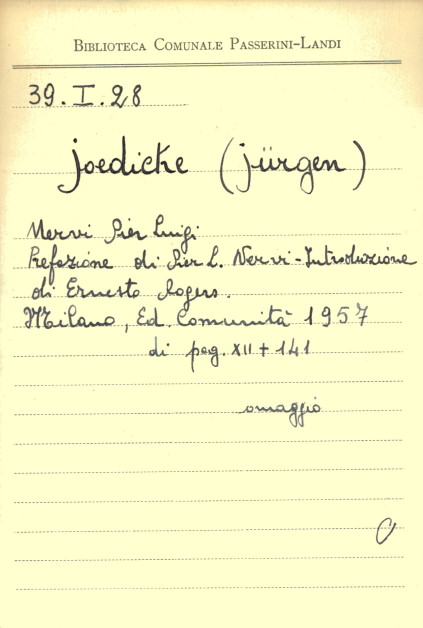 BIBLIOTECA COMUNALE PASSERINI-LANDI
39.I.28
Joedicke (Jürgen)
Nervi Pier Luigi
Prefazione di Pier L. Nervi - Introduzione
di Ernesto Rogers.
Milano, Ed. Comunità 1957
di pag. XII + 141
omaggio